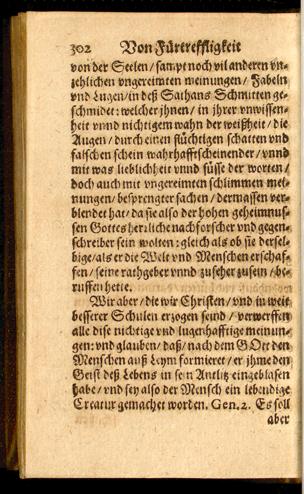 302 Von Fürtreffligkeit
von der Seelen / sampt noch vil anderen vn-
zehlichen vngereimten meinungen / Fabeln
vnd Lugen / in deß Sathans Schmitten ge-
schmidet: welcher jhnen / in jhrer vnwissen-
heit vnnd nichtigem wahn der weißheit / die
Augen / durch einen flüchtigen schatten vnd
falschen schein wahrhafft scheinender / vnnd
mit was lieblichheit vnnd süsse der worten /
doch auch mit vngereimten schlimmen mei-
nungen / besprengter sachen / dermassen ver-
blendet hat / da sie also der hohen geheimnus-
sen Gottes herzliche nachforscher vnd gegen-
schreiber sein wolten: gleich als ob sie dersel-
bige / als er die Welt vnd Menschen erschaf-
fen / seine rathgeber vnnd zuseher zu sein / be-
ruffen hette.
Wir aber / die wir Christen / vnd in weit
besserer Schulen erzogen seind / verwerffen
alle dise nichtige vnd lugenhafftige meinun-
gen: vnd glauben / daß / nach dem GOtt den
Menschen auß Leym formieret / er jhme den
Geist deß Lebens in sein Antlitz eingeblasen
habe / vnd sey also der Mensch ein lebendige
Creatur gemachet worden. Gen. 2. Es soll
aber